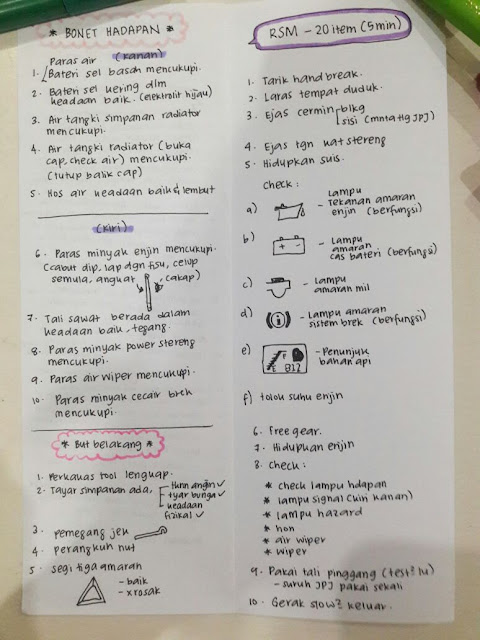 * BONET HADAPAN *
(kanan)
1. Paras air
Bateri sel basah mencukupi.
2. Bateri sel kering dlm
keadaan baik. (elektrolit hijau)
3. Air tangki simpanan radiator
mencukupi.
4. Air tangki radiator (buka
cap, check air) mencukupi
(tutup balik cap)
5. Hos air keadaan baik & lembut
(kiri)
6. Paras minyak enjin mencukupi.
(cabut dip, lap dgn tisu, celup
semula, angkat (cakap)
7. Tali sawat berada dalam
keadaan baik, tegang.
8. Paras minyak power stereng
mencukupi.
9. Paras air wiper mencukupi.
10. Paras minyak cecair brek
mencukupi.
* But belakang *
1. Perkakas tool lengkap.
2. Tayar simpanan ada,
thnn angin ✓
tyar bunga ✓
keadaan
fizikal ✓
3. pemegang jek
4. perangkuh nut
5. segi tiga amaran
- baik
- x rosak
RSM - 20 item (5 min)
1. Tarik handbreak.
2. Laras tempat duduk.
3. Ejas cermin blkg
sisi (mntatlg JPJ)
4. Ejas tgn kat stereng
5. Hidupkan suis.
check :
a) - Lampu
Tekanan amaran
enjin (berfungsi)
b) - Lampu
amaran
cas bateri (berfungsi)
c) - Lampu
amaran mil
d) - Lampu amaran
sistem brek (berfungsi)
e) F E B12 - Penunjuk
bahan api
f) tolok suhu enjin
6. Free gear.
7. Hidupkan enjin
8. Check :
* check lampu hdapan
* lampu signal (kiri kanan)
* lampu hazard
* hon
* air wiper
* wiper
9. Pakai tali pinggang (test2 lu)
- suruh JPJ pakai sekali
10. Gerak slow2 keluar.